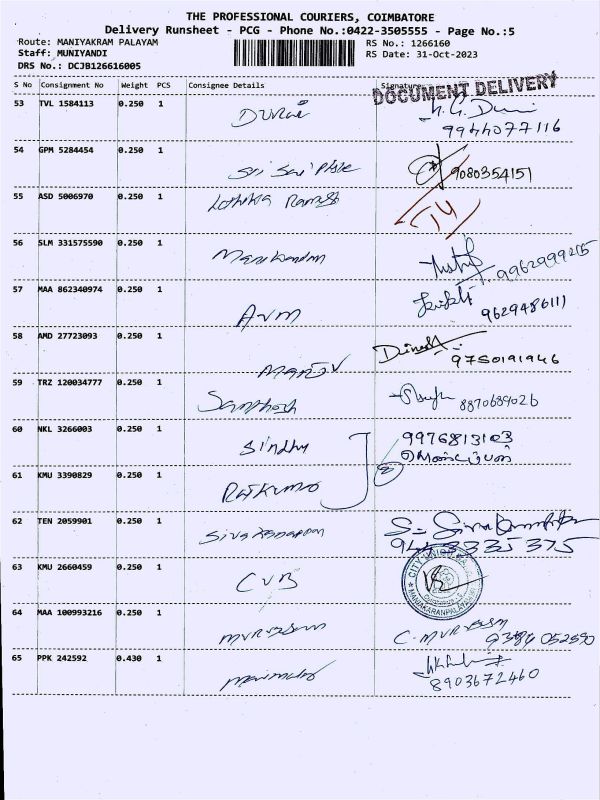 THE PROFESSIONAL COURIERS, COIMBATORE
Delivery Runsheet - PCG - Phone No.:0422-3505555 - Page No.:5
Route: MANIYAKRAM PALAYAM
RS No.: 1266160
Staff: MUNIYANDI
RS Date: 31-Oct-2023
DRS No.: DCJB126616005
S No Consignment No Weight PCS Consignee Details Signature
DOCUMENT DELIVERY
53 TVL 1584113 0.250 1 Durai
9944077116
54 GPM 5284454 0.250 1 Sri Sai 9080354151
55 ASD 5006970 0.250 1
56 SLM 331575590 0.250 1 Manikandan
57 MAA 862340974 0.250 1 AVM 9629486111
58 AMD 27723093 0.250 1 MANOJ Dinesh 9750191946
59 TRZ 120034777 0.250 1 Santhosh 8870689026
60 NKL 3266003 0.250 1 Sindhu 9976813103
61 KMU 3390829 0.250 1 Rajkumar
62 TEN 2059901 0.250 1
9443335375
63 KMU 2660459 0.250 1 CUB
CITY UNION BANK
64 MAA 100993216 0.250 1 Murugesan C. Murugesan 9384052590
65 PPK 242592 0.430 1
8903672460